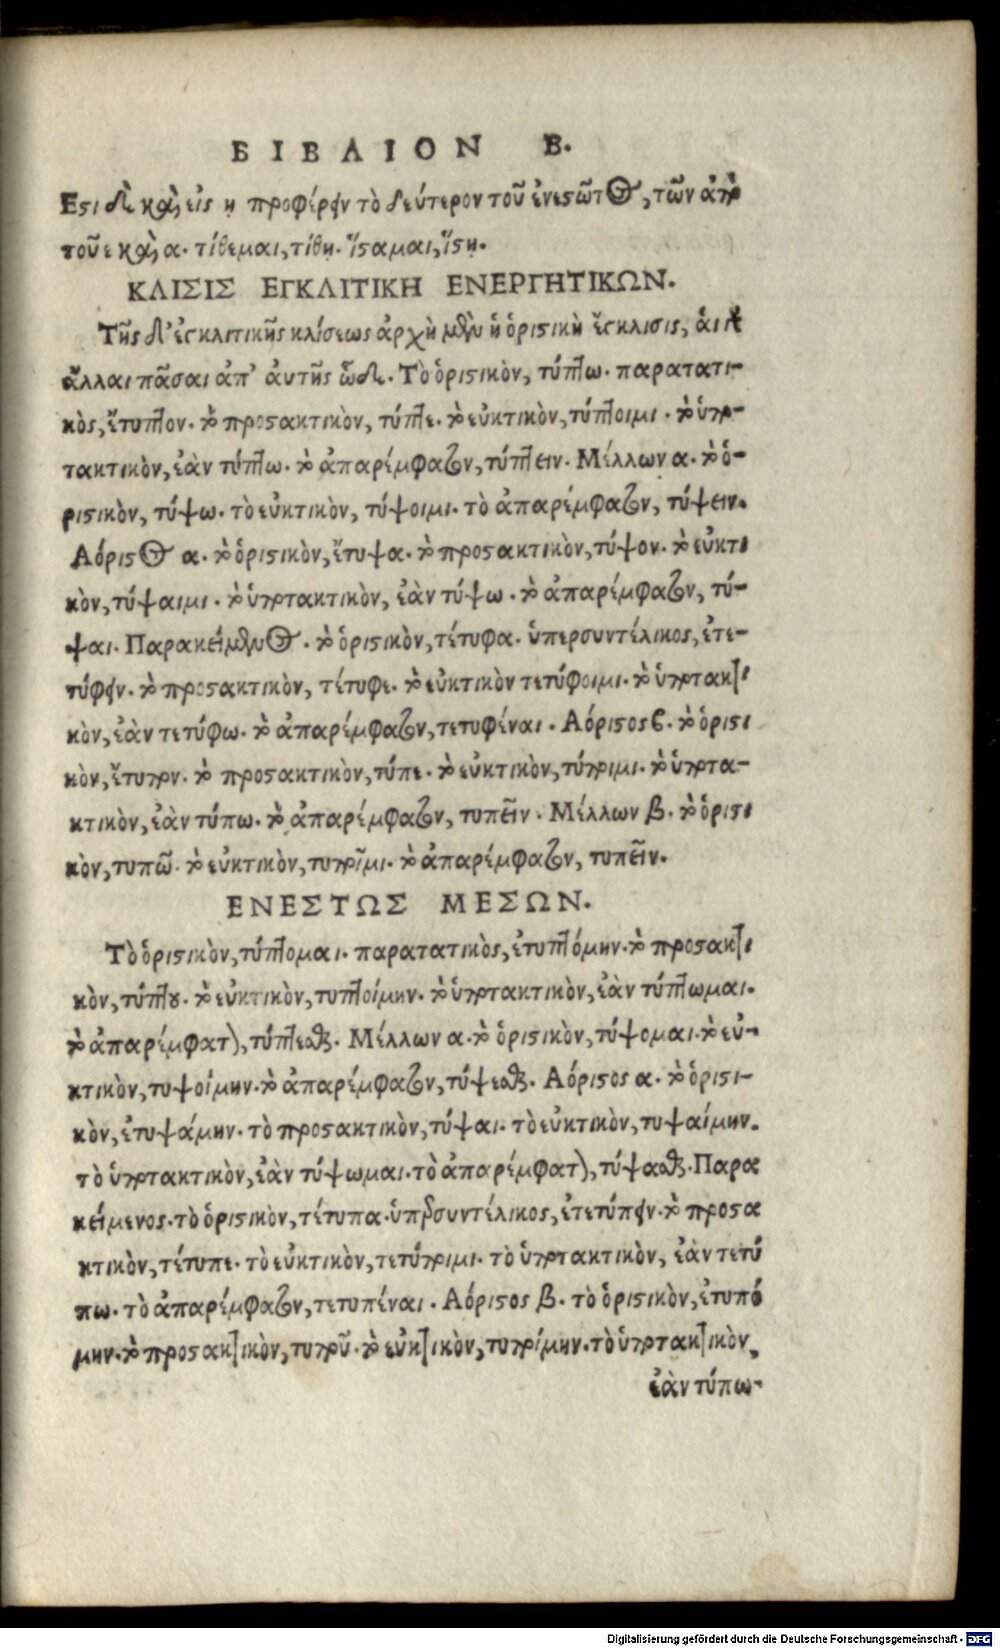 ΒΙΒΛΙΟΝ Β.
Ἔςι δὲ καὶ εἰς ῃ προφέρειν τὸ δεύτερον τοῦ ἐνεςῶτος, τῶν ἀπὸ
τοῦ ε καὶ α. τίθεμαι, τίθῃ. ἵςαμαι, ἵςῃ.
ΚΛΙΣΙΣ ΕΓΚΛΙΤΙΚΗ ΕΝΕΡΓΗΤΙΚΩΝ.
Τῆς δ' ἐγκλιτικῆς κλίσεως ἀρχὴ μὲν ἡ ὁριςικὴ ἔγκλισις, ἁι δὲ
ἄλλαι πᾶσαι ἀπ' ἀυτῆς ὧδε. Τὸ ὁριςικὸν, τύπτω. παρατατι-
κὸς, ἔτυπτον. τὸ προςακτικὸν, τύπτε. τὸ εὐκτικὸν, τύπτοιμι. τὸ ὑπο-
τακτικὸν, ἐὰν τύπτω. τὸ ἀπαρέμφατον, τύπτειν. Μέλλων α. τὸ ὁ-
ριςικὸν, τύψω. τὸ εὐκτικὸν, τύψοιμι. τὸ ἀπαρέμφατον, τύψειν.
Αόριςος α. τὸ ὁριςικὸν, ἔτυψα. τὸ προςακτικὸν, τύψον. τὸ εὐκτι
κὸν, τύψαιμι. τὸ ὑποτακτικὸν, ἐὰν τύψω. τὸ ἀπαρέμφατον, τύ-
ψαι. Παρακείμενος. τὸ ὁριςικὸν, τέτυφα. ὑπερσυντέλικος, ἐτε-
τύφειν. τὸ προςακτικὸν, τέτυφε. τὸ εὐκτικὸν τετύφοιμι. τὸ ὑποτακτι
κὸν, ἐὰν τετύφω. τὸ ἀπαρέμφατον, τετυφέναι. Αόριςος ϐ. τὸ ὁριςι
κὸν, ἔτυπον. τὸ προςακτικὸν, τύπε. τὸ εὐκτικὸν, τύποιμι. τὸ ὑποτα-
κτικὸν, ἐὰν τύπω. τὸ ἀπαρέμφατον, τυπεῖν. Μέλλων β. τὸ ὁριςι
κὸν, τυπῶ. τὸ εὐκτικὸν, τυποῖμι. τὸ ἀπαρέμφατον, τυπεῖν.
ΕΝΕΣΤΩΣ ΜΕΣΩΝ.
Τὸ ὁριςικὸν, τύπτομαι. παρατατικὸς, ἐτυπτόμην. τὸ προςακτι
κὸν, τύπτου. τὸ εὐκτικὸν, τυπτοίμην. τὸ ὑποτακτικὸν, ἐὰν τύπτωμαι.
τὸ ἀπαρέμφατον, τύπτεσθαι. Μέλλων α. τὸ ὁριςικὸν, τύψομαι. τὸ εὐ-
κτικὸν, τυψοίμην. τὸ ἀπαρέμφατον, τύψεσθαι. Αόριςος α. τὸ ὁριςι-
κὸν, ἐτυψάμην. τὸ προςακτικὸν, τύψαι. τὸ εὐκτικὸν, τυψαίμην.
τὸ ὑποτακτικὸν, ἐὰν τύψωμαι. τὸ ἀπαρέμφατον, τύψασθαι. Παρα
κείμενος. τὸ ὁριςικὸν, τέτυπα. ὑπερσυντέλικος, ἐτετύπειν. τὸ προςα
κτικὸν, τέτυπε. τὸ εὐκτικὸν, τετύποιμι. τὸ ὑποτακτικὸν, ἐὰν τετύ
πω. τὸ ἀπαρέμφατον, τετυπέναι. Αόριςος β. τὸ ὁριςικὸν, ἐτυπό
μην. τὸ προςακτικὸν, τυποῦ. τὸ εὐκτικὸν, τυποίμην. τὸ ὑποτακτικὸν,
ἐὰν τύπω-
Digitalisierung gefördert durch die Deutsche Forschungsgemeinschaft - DFG